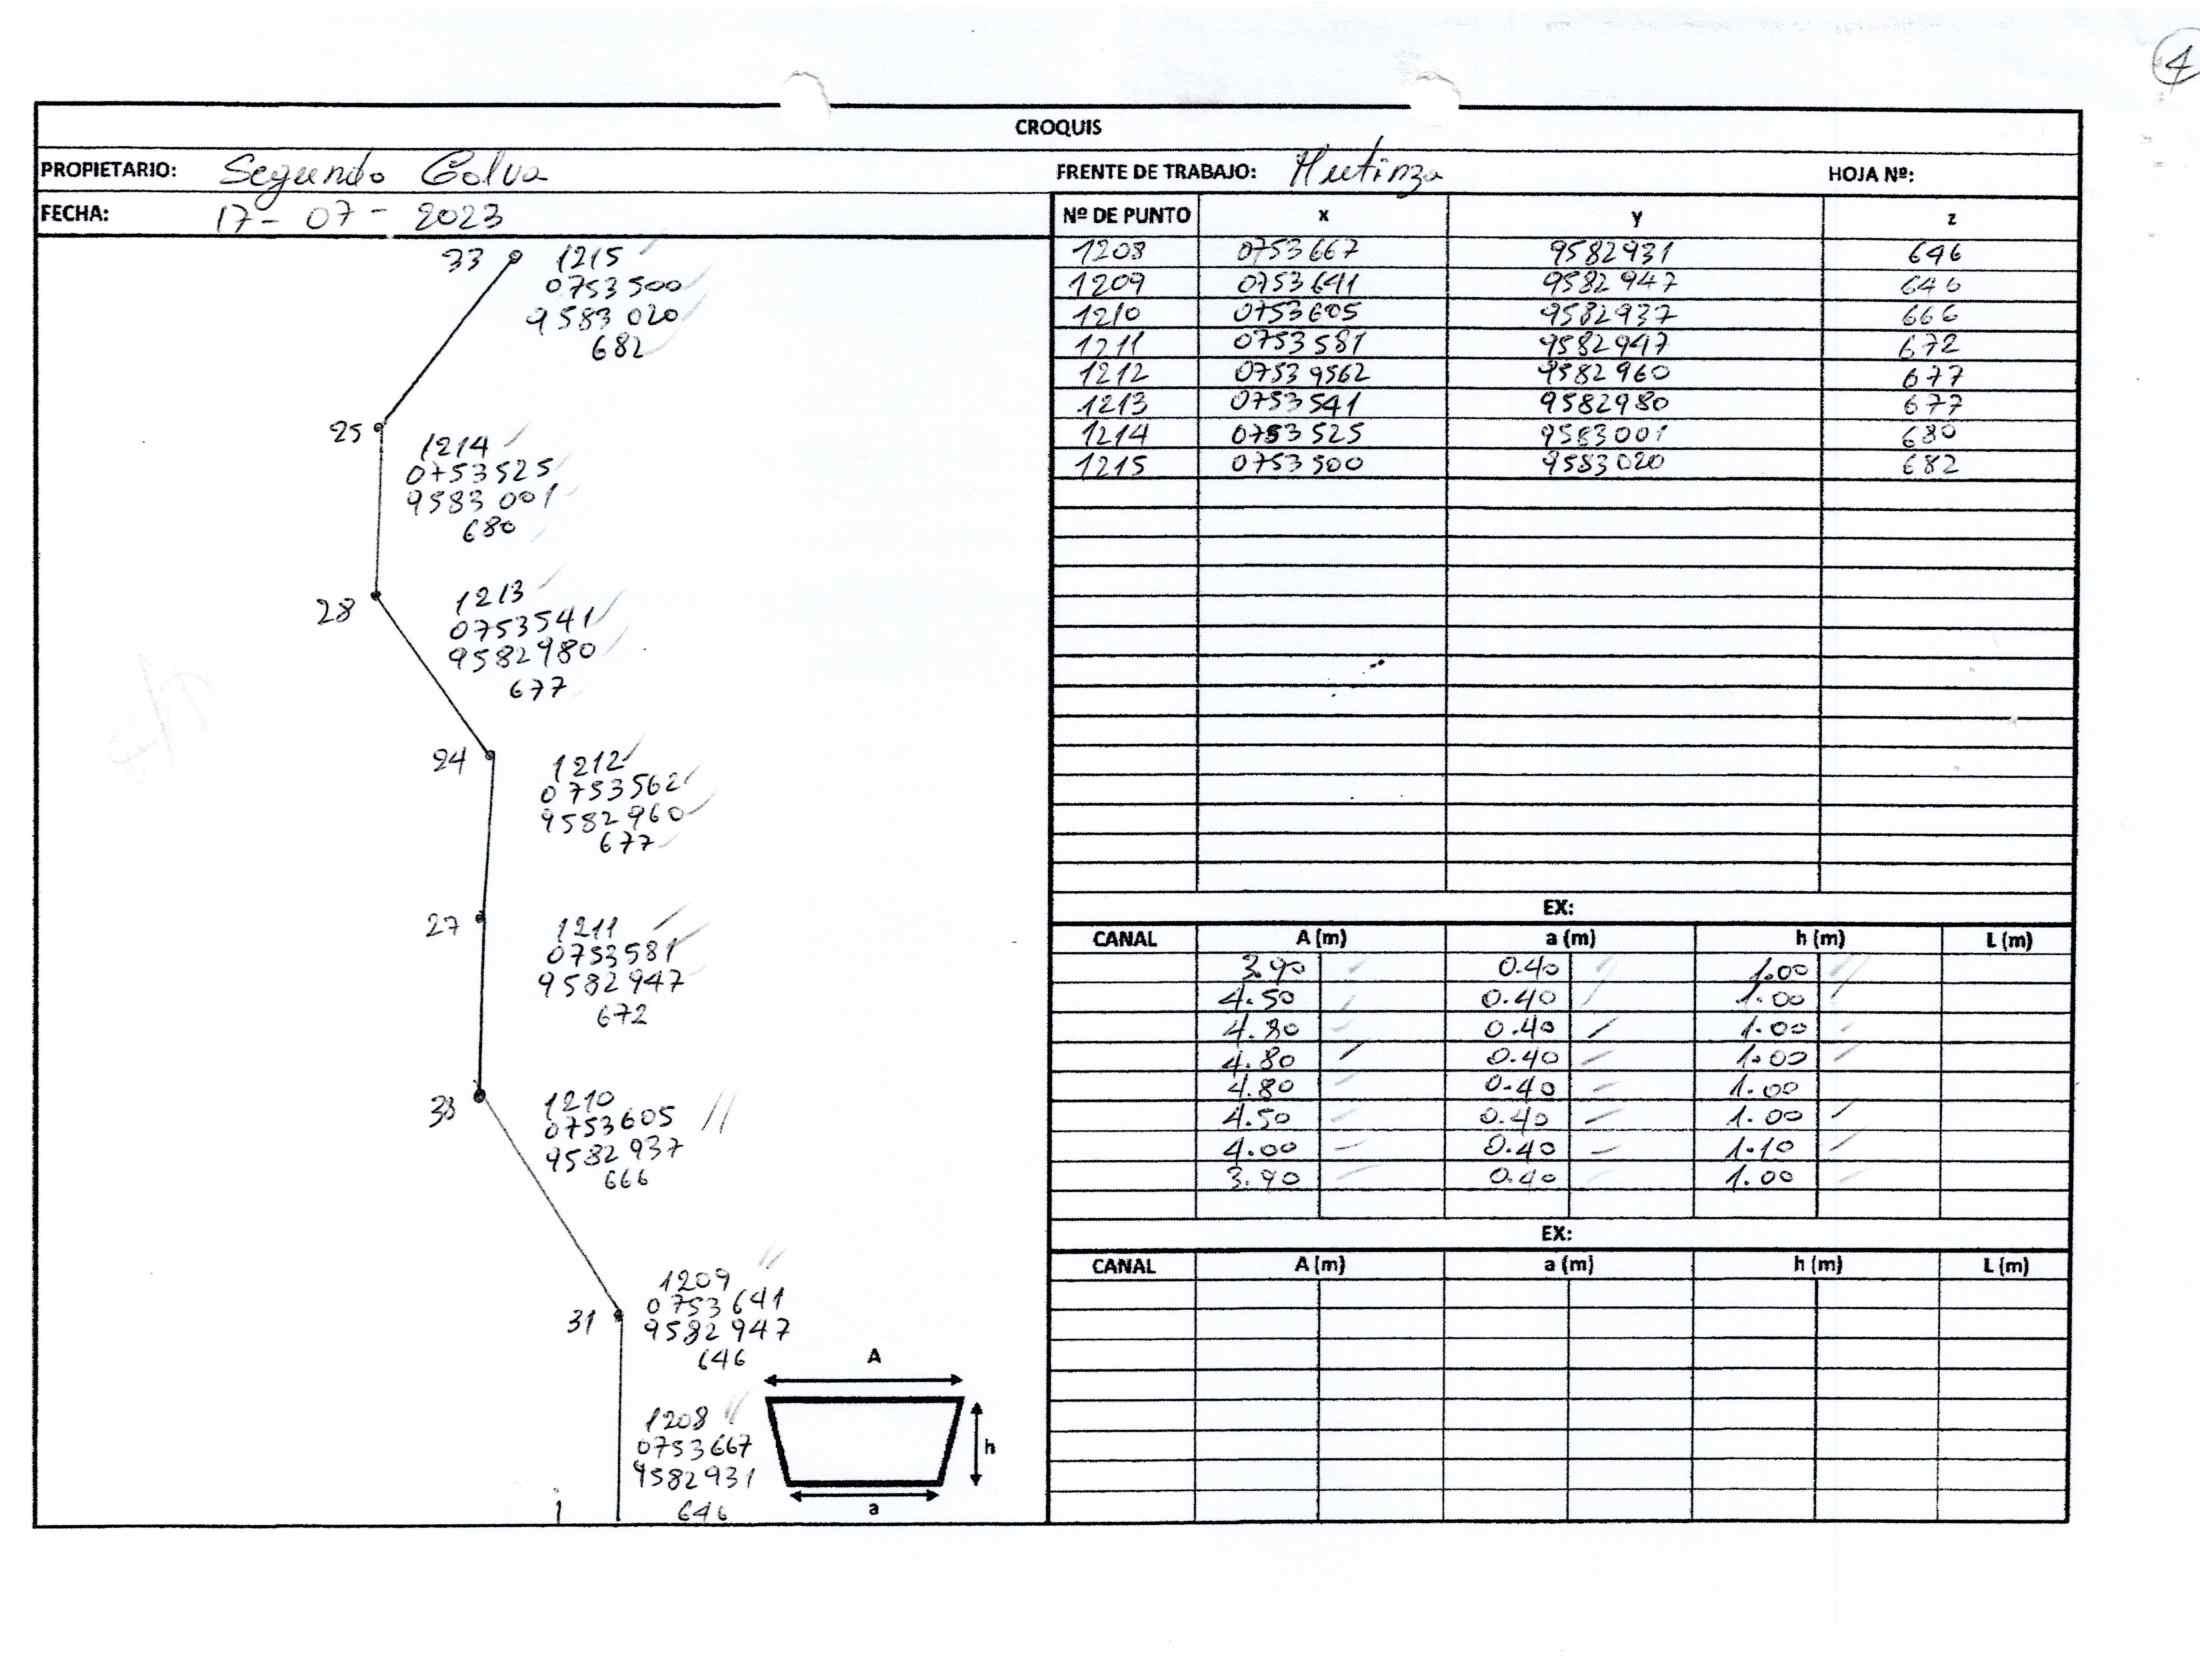 4
CROQUIS
PROPIETARIO: Segundo Golva FRENTE DE TRABAJO: Mutinza HOJA Nº:
FECHA: 17-07-2023
Nº DE PUNTO x y z
1208 0753667 9582931 646
1209 0753641 9582947 646
1210 0753605 9582937 666
1211 0753581 9582947 672
1212 07539562 9582960 677
1213 0753541 9582980 677
1214 0753525 9583001 680
1215 0753500 9583020 682
33 1215
0753500
9583020
682
25 1214
0753525
9583001
680
28 1213
0753541
9582980
677
24 1212
0753562
9582960
677
27 1211
0753581
9582947
672
33 1210
0753605
9582937
666
31 1209
0753641
9582947
646
1208
0753667
9582931
646
A
h
a
EX:
CANAL A (m) a (m) h (m) L (m)
3.90 0.40 1.00
4.50 0.40 1.00
4.80 0.40 1.00
4.80 0.40 1.00
4.80 0.40 1.00
4.50 0.40 1.00
4.00 0.40 1.10
3.90 0.40 1.00
EX:
CANAL A (m) a (m) h (m) L (m)